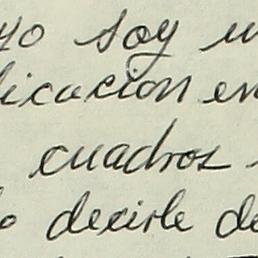 yo soy u
licacion en
cuadros
lo decirle de